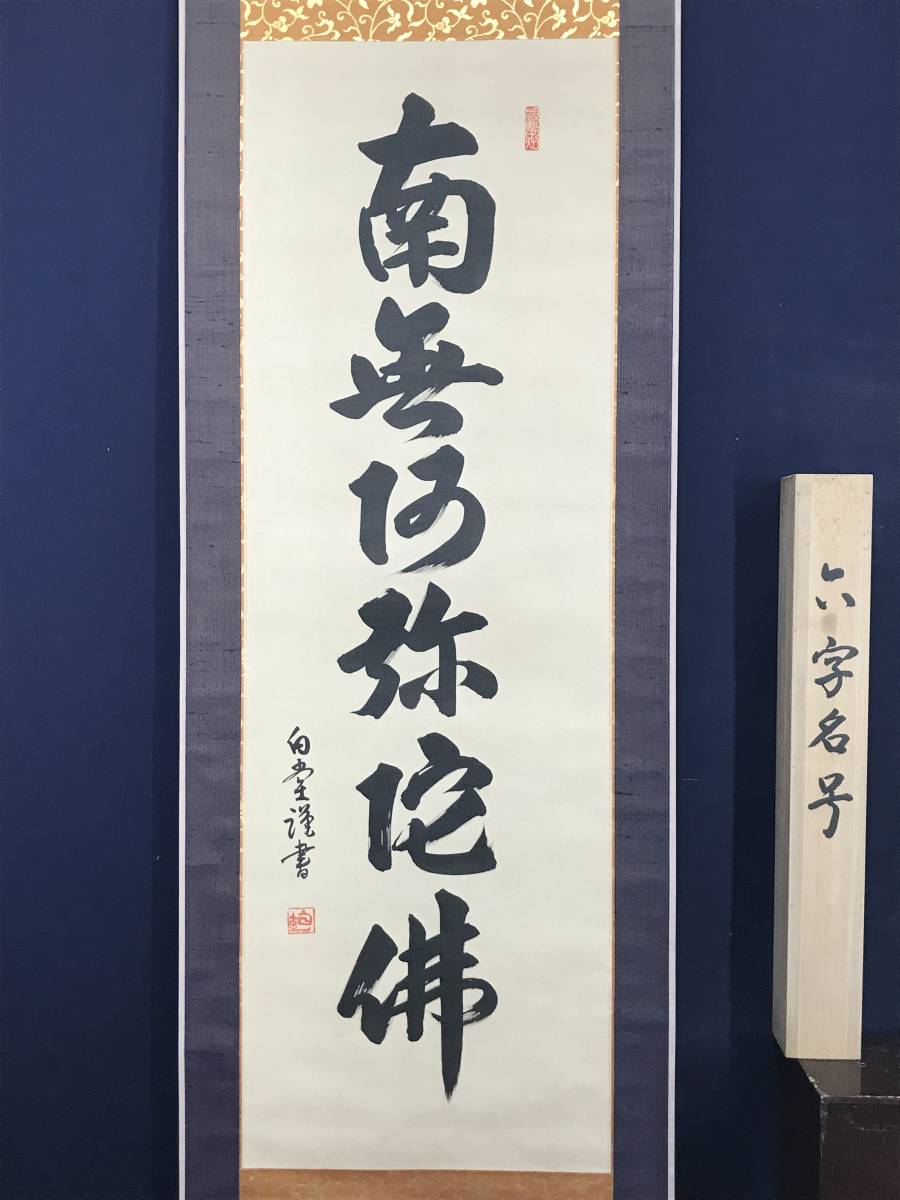 南無阿弥陀佛
白堂謹書
六字名号